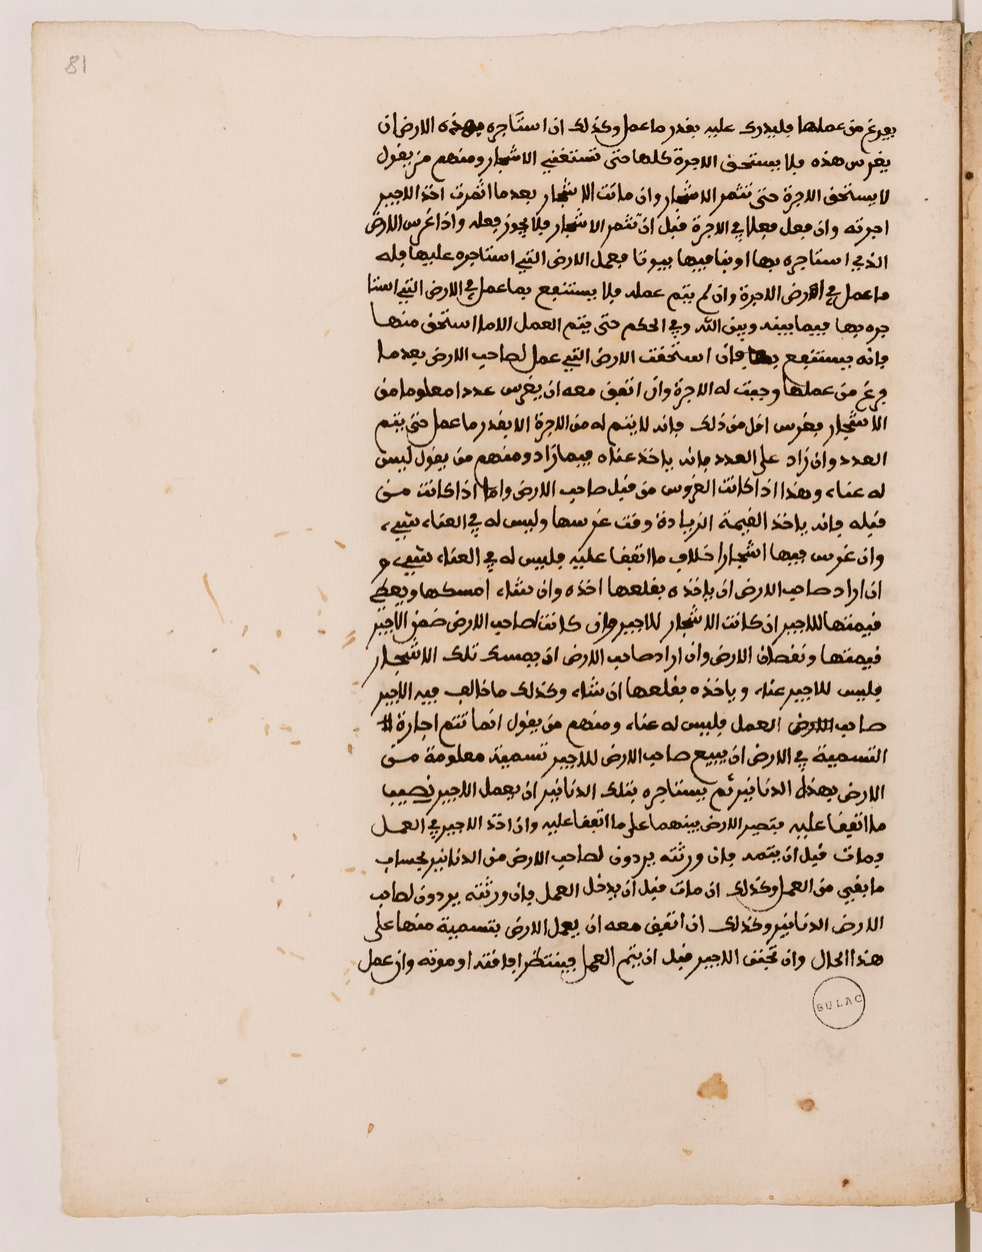 81
يفرغ من عملها فليدرك عليه بقدر ما عمل وكذلك ان استاجره بهذه الارض ان
يغرس هذه فلا يستحق الاجرة كلها حتى تستغني الاشجار ومنهم من يقول
لا يستحق الاجرة حتى تثمر الاشجار وان ماتت الاشجار بعد ما اثمرت اخذ الاجير
اجرته وان فعل فعلا في الاجرة قبل ان تثمر الاشجار فلا يجوز فعله واذا غرس الارض
الذي استاجره بها او بنا فيها بيوتا فعمل الارض التي استاجره عليها فله
ما عمل في الارض الاجرة وان لم يتم عمله فلا يستنفع بما عمل في الارض التي استا
جره بها فيما بينه وبين الله وفي الحكم حتى يتم العمل الا ما استحق منها
فانه يستنفع وان استحقت الارض التي عمل لصاحب الارض بعد ما
فرغ من عملها وجبت له الاجرة وان اتفق معه ان يغرس عددا معلوما من
الاشجار فغرس اقل من ذلك فانه لا يتم له من الاجرة الا بقدر ما عمل حتى يتم
العدد وان زاد على العدد فانه ياخذ عناه فيما زاد ومنهم من يقول ليس
له عناء وهذا اذا كانت الغروس من قبل صاحب الارض واما اذا كانت من
قبله فانه ياخذ القيمة الزيادة وقت غرسها وليس له في العناء شيء
وان غرس فيها اشجارا خلاف ما اتفقا عليه فليس له في العناء شيء و
ان اراد صاحب الارض ان ياخذه بقلعها اخذه وان شاء امسكها ويعطي
قيمتها للاجير ان كانت الاشجار للاجير وان كانت لصاحب الارض ضمن الاجير
قيمتها ونقصان الارض وان اراد صاحب الارض ان يمسك تلك الاشجار
فليس للاجير عناء وياخذه بقلعها ان شاء وكذلك ما خالف فيه الاجير
صاحب الارض العمل فليس له عناء ومنهم من يقول انما تتم اجارة
التسمية في الارض ان يبيع صاحب الارض للاجير تسمية معلومة من
الارض بهذه الدنانير ثم يستاجره بتلك الدنانير ان يعمل الاجير نصيبا
ما اتفقا عليه فتصير الارض بينهما على ما اتفقا عليه وان اخذ الاجير في العمل
ومات قبل ان يتمه فان ورثته يردون لصاحب الارض من الدنانير بحساب
ما بقي من العمل وكذلك ان مات قبل ان يدخل العمل فان ورثته يردون لصاحب
الارض الدنانير وكذلك ان اتفق معه ان يعمل الارض بتسمية منها على
هذا الحال وان تجنن الاجير قبل ان يتم العمل فينتظر افاقته او موته وان عمل
BULAC